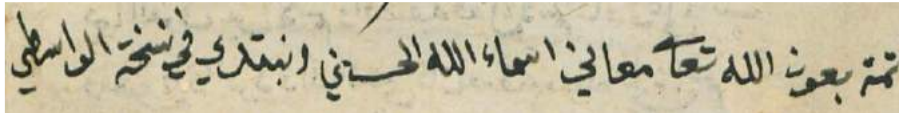 تمة بعون الله تعا معاني اسماء الله الحسني ونبتدي في نسخة الواسطي